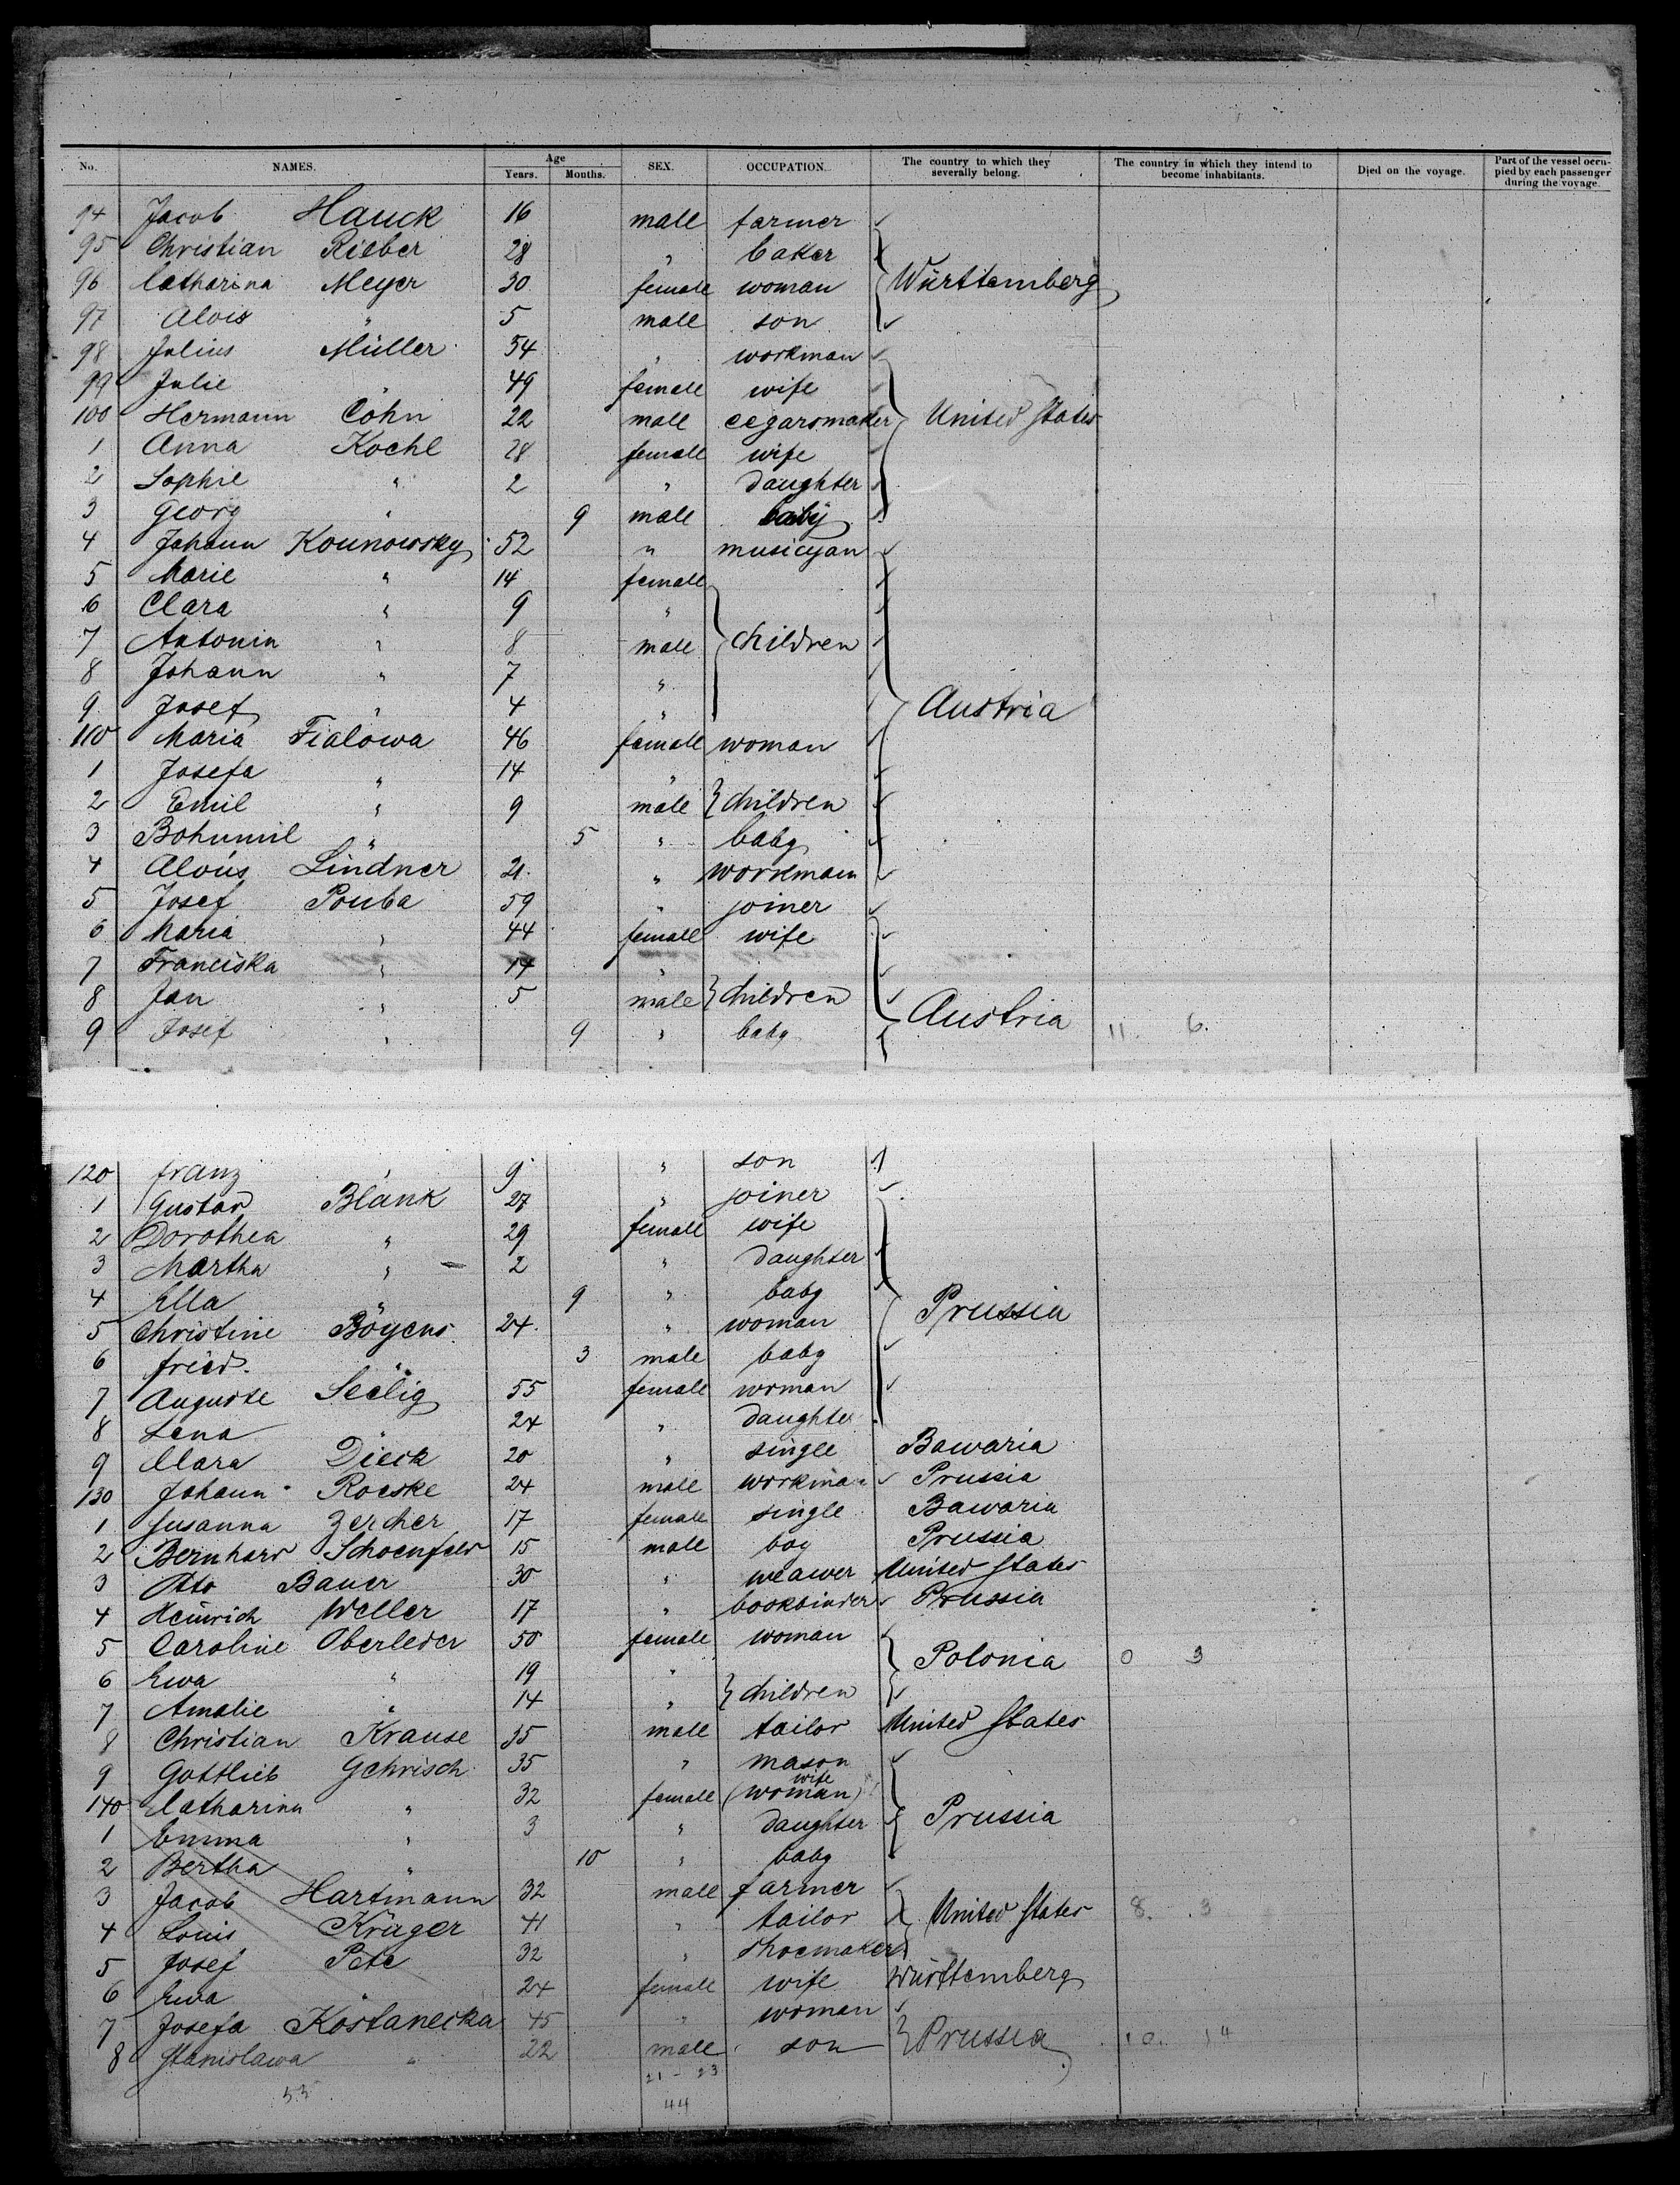 No. NAMES. Age Years. Months. SEX. OCCUPATION. The country to which they severally belong. The country in which they intend to become inhabitants. Died on the voyage. Part of the vessel occupied by each passenger during the voyage.
94 Jacob Hauck 16 male farmer
95 Christian Rieber 28 " baker
96 Catharina Meyer 30 female woman Württemberg
97 Alois " 5 male son
98 Julius Müller 54 " workman
99 Julie " 49 female wife
100 Hermann Cohn 22 male cegarsmaker United States
1 Anna Kochl 28 female wife
2 Sophie " 2 " daughter
3 Georg " 9 male baby
4 Johann Kounowsky 52 " musicyan
5 Marie " 14 female
6 Clara " 9 "
7 Antonin " 8 male children
8 Johann " 7 "
9 Josef " 4 " Austria
110 Maria Fialowa 46 female woman
1 Josefa " 14 "
2 Emil " 9 male children
3 Bohumil " 5 " baby
4 Aloüs Lindner 21 " workmain
5 Josef Pouba 59 " joiner
6 Maria " 44 female wife
7 Franciska " 14 "
8 Jan " 5 male children
9 Josef " 9 " baby Austria 11. 6.
120 Franz " 9 " son
1 Gustav Blank 27 " joiner
2 Dorothea " 29 female wife
3 Martha " 2 " daughter
4 Ella " 9 " baby Prussia
5 Christine Böyens 24 " woman
6 fried. " 3 male baby
7 Auguste Seelig 55 female woman
8 Lena " 24 " daughter
9 Clara Dieck 20 " single Bawaria
130 Johann Roeske 24 male workman Prussia
1 Susanna Zercher 17 female single Bawaria
2 Bernhard Schoenfeld 15 male boy Prussia
3 Otto Bauer 30 " weawer United States
4 Heinrich Weller 17 " bookbinder Prussia
5 Caroline Oberleder 50 female woman Polonia 0 3
6 Ewa " 19 "
7 Amalie " 14 " children
8 Christian Krause 35 male tailor United States
9 Gottlieb Gehrisch 35 " mason
wife
140 Catharina " 32 female (woman)
1 Emma " 3 " daughter Prussia
2 Bertha " 10 " baby
3 Jacob Hartmann 32 male farmer
4 Louis Krüger 41 " tailor United States 8. 3
5 Josef Pete 32 " shoemaker
6 Ewa " 24 female wife Württemberg
7 Josefa Kostanecka 45 " woman
8 Stanislawa " 22 male son Prussia 10. 14
21 - 23
53 44